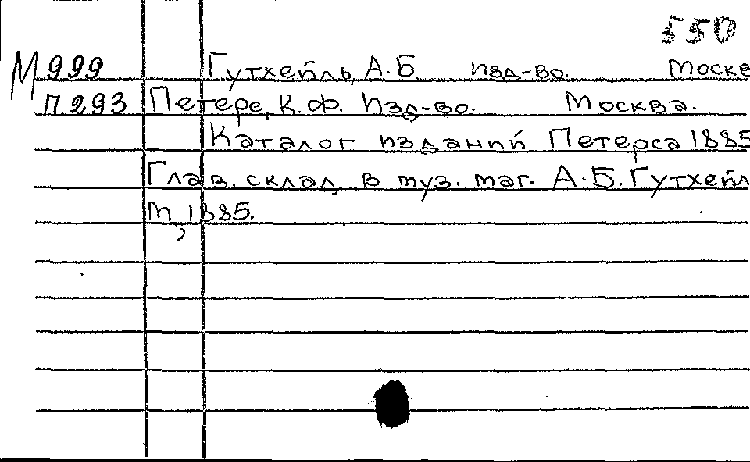 550
М 999 Гутхейль, А.Б. Изд-во. Москв
П.293 Петерс, К.Ф. Изд-во. Москва.
Каталог изданий Петерса 1885
Глав. склад в муз. маг. А.Б. Гутхейл
М, 1885.